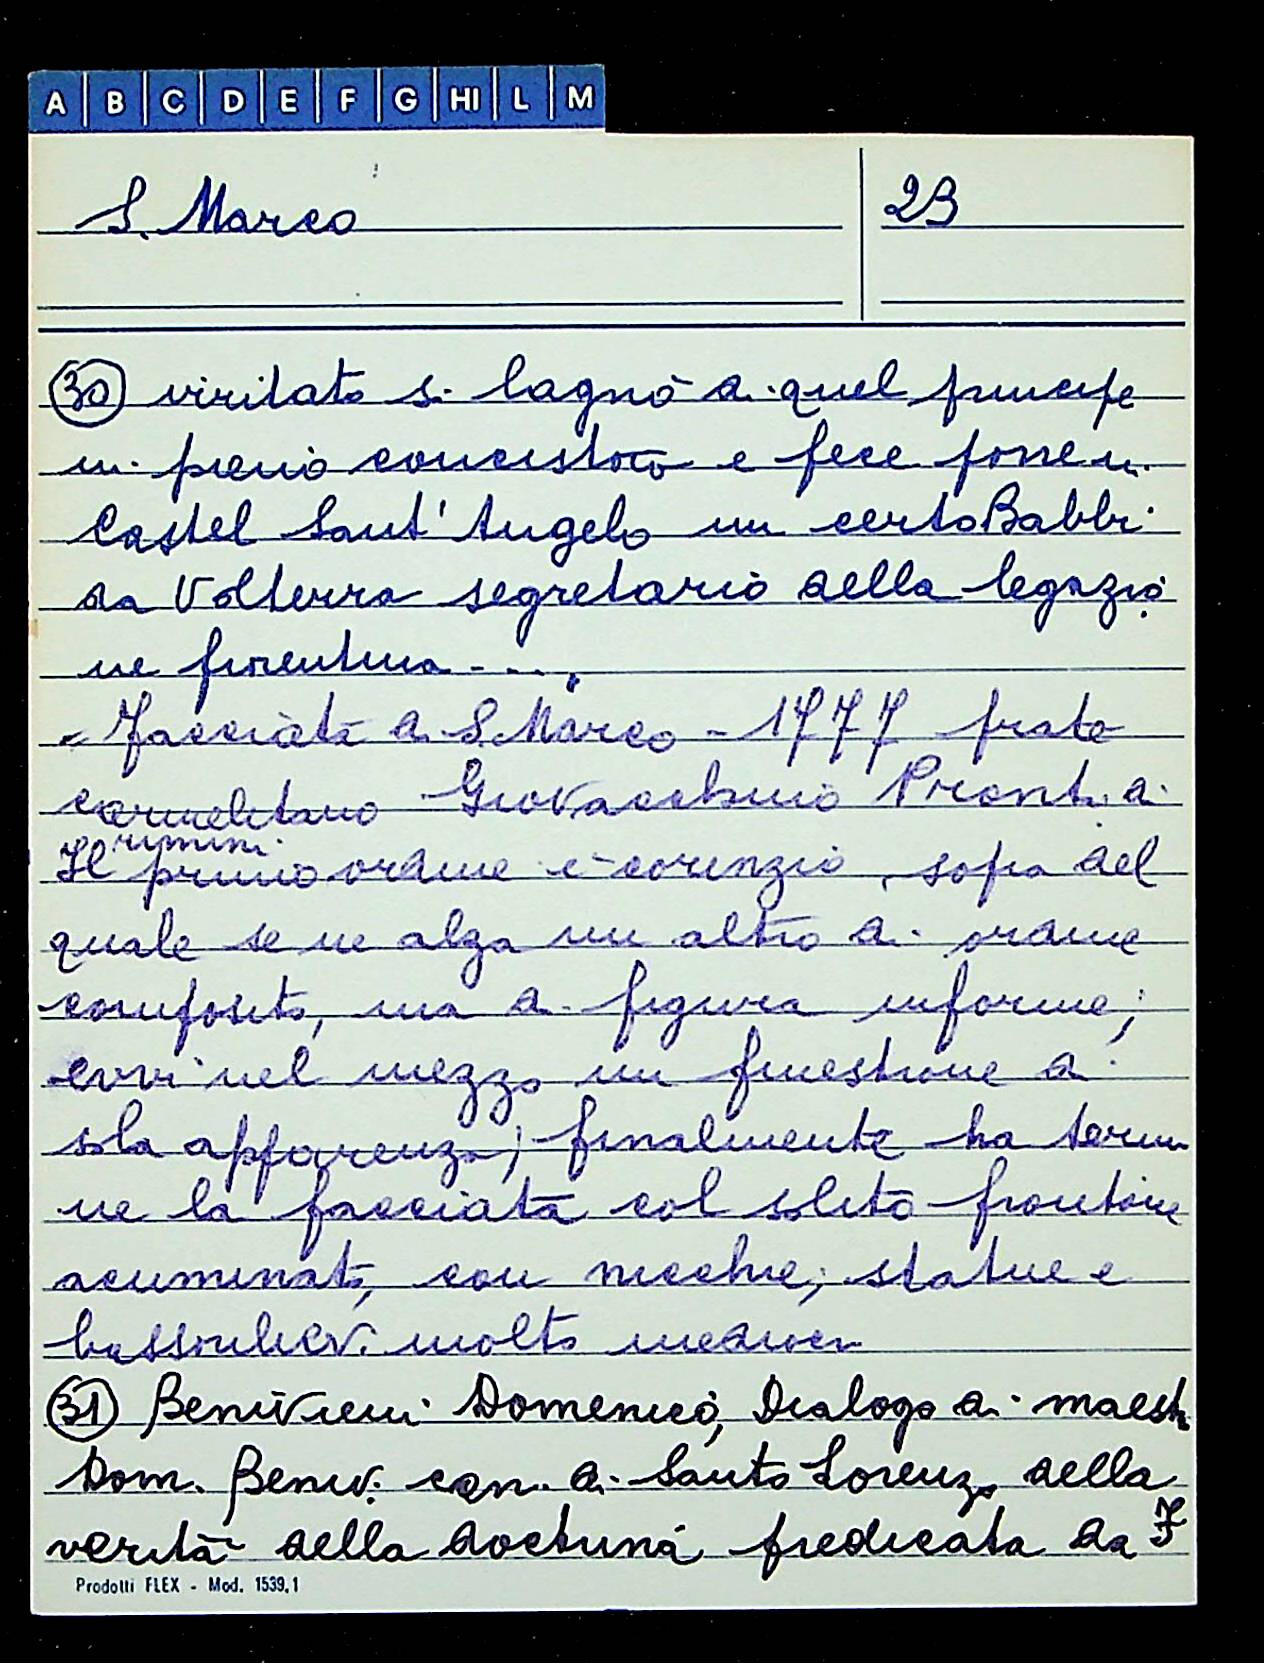 A B C D E F G HI L M
S. Marco 23
30 viritato si lagnò di quel principe
in pieno concistoro e fece porre in
Castel Sant'Angelo un certo Babbi
da Volterra segretario della legazio
ne fiorentina - ...
= Facciata di S. Marco - 1777 frate
carmelitano Giovacchino Pronti di
rimini
Il primo ordine è corinzio, sopra del
quale se ne alza un altro di ordine
composito, ma di figura informe;
evvi nel mezzo un finestrone di
sola apparenza; finalmente ha termi
ne la facciata col solito frontone
acuminato, con nicchie, statue e
bassorilievi molto mediocri
31 Benivieni Domenico, Dialogo di maestro
Dom. Beniv. can. di Santo Lorenzo della
verità della doctrina predicata da F
Prodotti FLEX - Mod. 1539.1